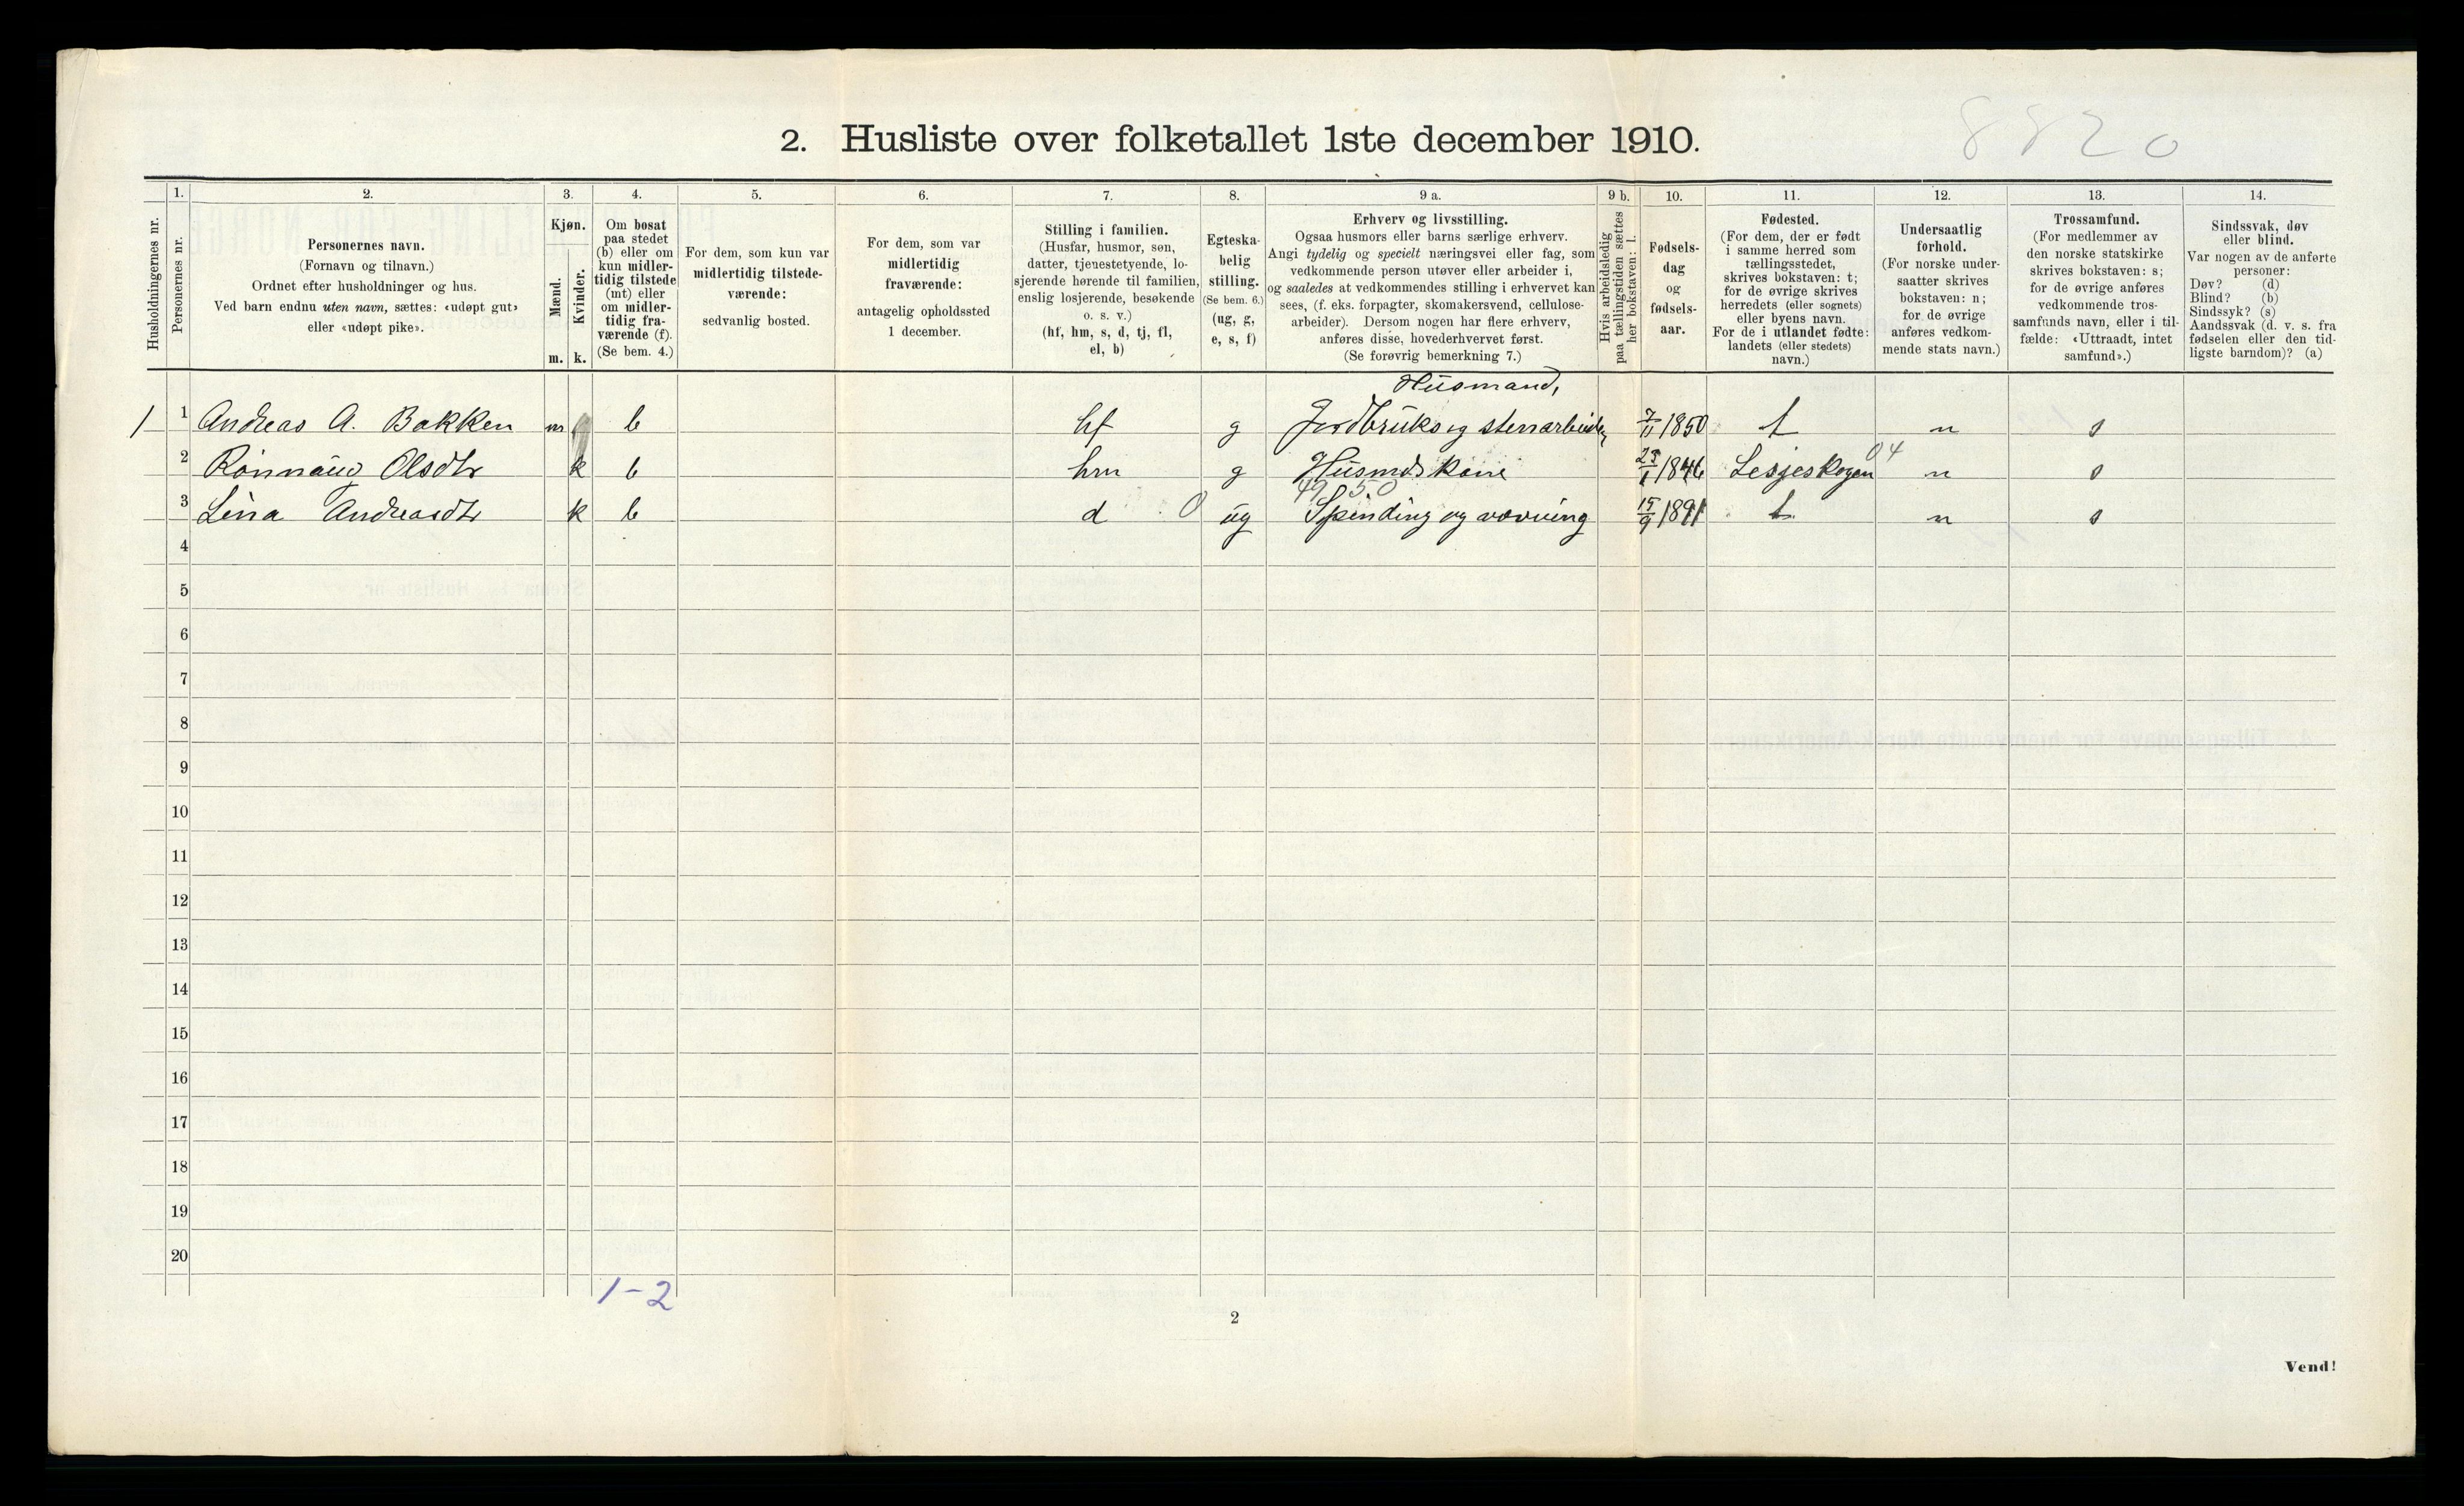 8820
2. Husliste over folketallet 1ste december 1910.
Husholdningernes nr.
1.
Personernes nr.
2.
Personernes navn.
(Fornavn og tilnavn.)
Ordnet efter husholdninger og hus.
Ved barn endnu uten navn, sættes: «udøpt gut»
eller «udøpt pike».
3.
Kjøn.
Mænd.
Kvinder.
m. k.
4.
Om bosat
paa stedet
(b) eller om
kun midler-
tidig tilstede
(mt) eller
om midler-
tidig fra-
værende (f).
(Se bem. 4.)
5.
For dem, som kun var
midlertidig tilstede-
værende:
sedvanlig bosted.
6.
For dem, som var
midlertidig
fraværende:
antagelig opholdssted
1 december.
7.
Stilling i familien.
(Husfar, husmor, søn,
datter, tjenestetyende, lo-
sjerende hørende til familien,
enslig losjerende, besøkende
o. s. v.)
(hf, hm, s, d, tj, fl,
el, b)
8.
Egteska-
belig
stilling.
(Se bem. 6.)
(ug, g,
e, s, f)
9 a.
Erhverv og livsstilling.
Ogsaa husmors eller barns særlige erhverv.
Angi tydelig og specielt næringsvei eller fag, som
vedkommende person utøver eller arbeider i,
og saaledes at vedkommendes stilling i erhvervet kan
sees, (f. eks. forpagter, skomakersvend, cellulose-
arbeider). Dersom nogen har flere erhverv,
anføres disse, hovederhvervet først.
(Se forøvrig bemerkning 7.)
9 b.
Hvis arbeidsledig
paa tællingstiden sættes
her bokstaven: l.
10.
Fødsels-
dag
og
fødsels-
aar.
11.
Fødested.
(For dem, der er født
i samme herred som
tællingsstedet,
skrives bokstaven: t;
for de øvrige skrives
herredets (eller sognets)
eller byens navn.
For de i utlandet fødte:
landets (eller stedets)
navn.)
12.
Undersaatlig
forhold.
(For norske under-
saatter skrives
bokstaven: n;
for de øvrige
anføres vedkom-
mende stats navn.)
13.
Trossamfund.
(For medlemmer av
den norske statskirke
skrives bokstaven: s;
for de øvrige anføres
vedkommende tros-
samfunds navn, eller i til-
fælde: «Uttraadt, intet
samfund».)
14.
Sindssvak, døv
eller blind.
Var nogen av de anførte
personer:
Døv? (d)
Blind? (b)
Sindssyk? (s)
Aandssvak (d. v. s. fra
fødselen eller den tid-
ligste barndom)? (a)
Husmand,
1 1 Andreas A. Bakken m b hf g Jordbruk og stenarbeider 7/11 1850 t n s
04
2 Rönnaug Olsdtr k b hm g Husmdskone 23/1 1846 Lesjeskogen n s
49 50
3 Lina Andreasdtr k b d 0 ug Spinding og vævning 15/9 1891 t n s
4
5
6
7
8
9
10
11
12
13
14
15
16
17
18
19
20
1-2
2
Vend!